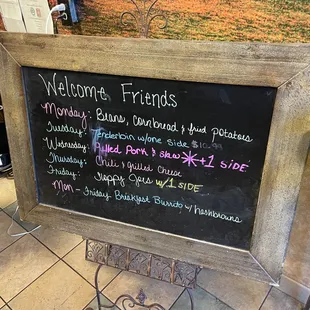 Welcome Friends
Monday: Beans, cornbread & fried potatoes
Tuesday: Tenderloin w/one side $10.99
Wednesday: Pulled Pork & slaw *+1 SIDE
Thursday: Chili & grilled Cheese
Friday: Sloppy Joes w/1 SIDE
Mon - Friday Breakfast Burrito w/ hashbrowns